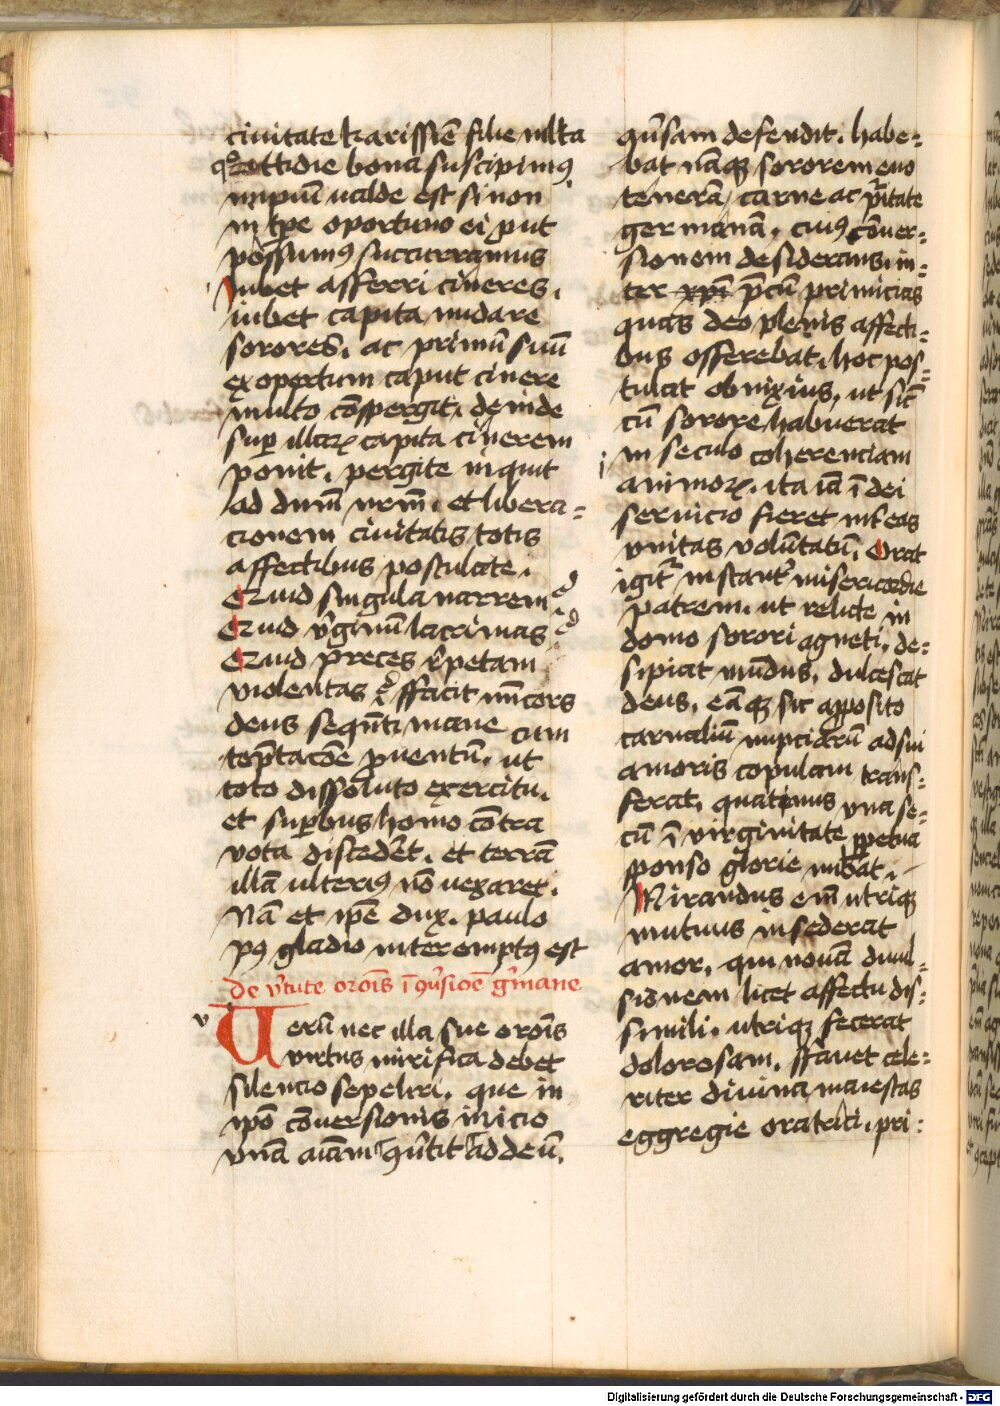 ciuitate karissiē filie mlta
qͦottidie bona suscipimꝰ
impiū ualde est si non
in tꝑe oportuno ei ꝓut
possumꝰ succurramus
Iubet afferri cineres.
iubet capita nudare
sorores. ac primū suū
ex opertum caput cinere
multo cōspergit. deinde
suꝑ illaꝝ capita cinerem
ponit. pergite inquit
ad dnm̄ nrm̄. et libera=
cionem ciuitatis totis
affectibus postulate.
Quid singula narrem
Quid v̾ginum lacrimas
Quid preces r̾petam
violentas effecit mīcors
deus sequēti mane cum
tēptacōe ꝓuentū. ut
toto dissoluto exercitu.
et suꝑbus homo contra
vota discederet. et terrā
illā ulteriꝰ nō uexaret.
Nā et ipē dux. paulo
pꝰ gladio interemptꝰ est
de v̾tute orōis ī ꝯu̾sioē g̾mane
v Uerū nec illa sue orōis
virtus mirifica debet
silencio sepeliri. que in
ipō cōuersionis inicio
vnā aīam ꝯu̾tit ad deū.
qu̾sam defendit. habe=
bat nāqꝫ sororem euo
tenerā, carne ac pͥetate
germanā. cuiꝰ cōuer=
sionem desiderans. in=
ter xpī p̄cū primicias
quas deo plenis affecti=
bus offerebat. hoc pos=
tulat obnixius. ut sic̄
cū sorore habuerat
in seculo coherenciam
animoꝝ. ita iā ī dei
seruicio fieret int̾ eas
vnitas volūtatū. Orat
igit̾ instant̾ misericordie
patrem. ut relicte in
domo sorori agneti. de=
sipiat mūdus, dulcescat
deus. eāqꝫ sic apposito
carnaliū nupciarū ad sui
amoris copulam trans=
ferat. quatinus vna se=
cū ī virginitate ꝑpetua
sponso glorie nubat.
Mirandus em̄ utriqꝫ
mutuus insederat
amor. qui nouā diuul=
sionem licet affectu dis=
simili. utriqꝫ fecerat
dolorosam. ffauet cele=
riter diuina maiestas
eggregie oratrici. pri:
Digitalisierung gefördert durch die Deutsche Forschungsgemeinschaft - DFG